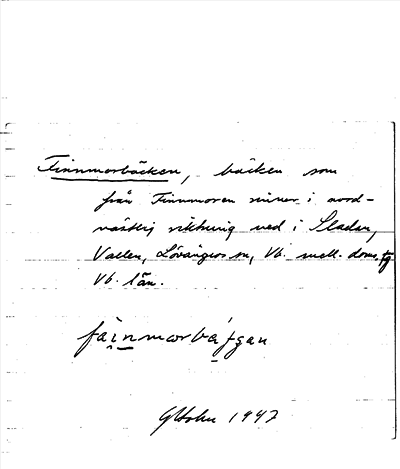 Finnmorbäcken, bäcken som
från Finnmoren rinner i nord-
västlig riktning ned i Sladan,
Vallen, Lövångers sn, Vb. mell. doms.
Vb. län.
1947